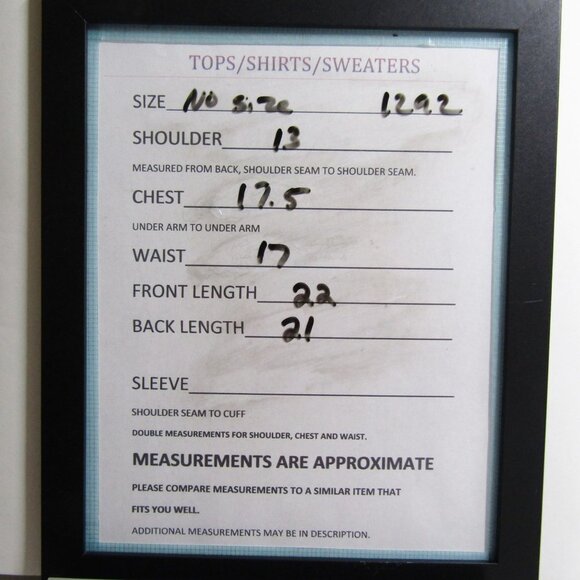 TOPS/SHIRTS/SWEATERS
SIZE No size 1292
SHOULDER 13
MEASURED FROM BACK, SHOULDER SEAM TO SHOULDER SEAM.
CHEST 17.5
UNDER ARM TO UNDER ARM
WAIST 17
FRONT LENGTH 22
BACK LENGTH 21
SLEEVE
SHOULDER SEAM TO CUFF
DOUBLE MEASUREMENTS FOR SHOULDER, CHEST AND WAIST.
MEASUREMENTS ARE APPROXIMATE
PLEASE COMPARE MEASUREMENTS TO A SIMILAR ITEM THAT
FITS YOU WELL.
ADDITIONAL MEASUREMENTS MAY BE IN DESCRIPTION.